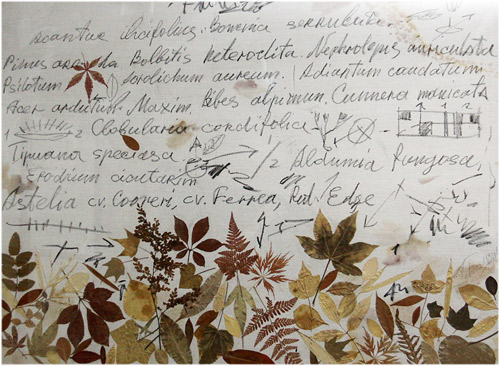 acantus ilicifolius. Bowenia serrulata.
Pinus Bolbitis heteroclita. Nephrolepis auriculata
Psilotum aureum. Adiantum caudatum
Acer ardutum. Maxim. Ribes alpinum. Cunnera manicata
1 2 Globularia cordifolia
Tipuana speciosa 1/2 Aldumia fungosa,
Erodium cicutarium
Astelia cv. Cooperi, cv. Ferrea, Red Edge